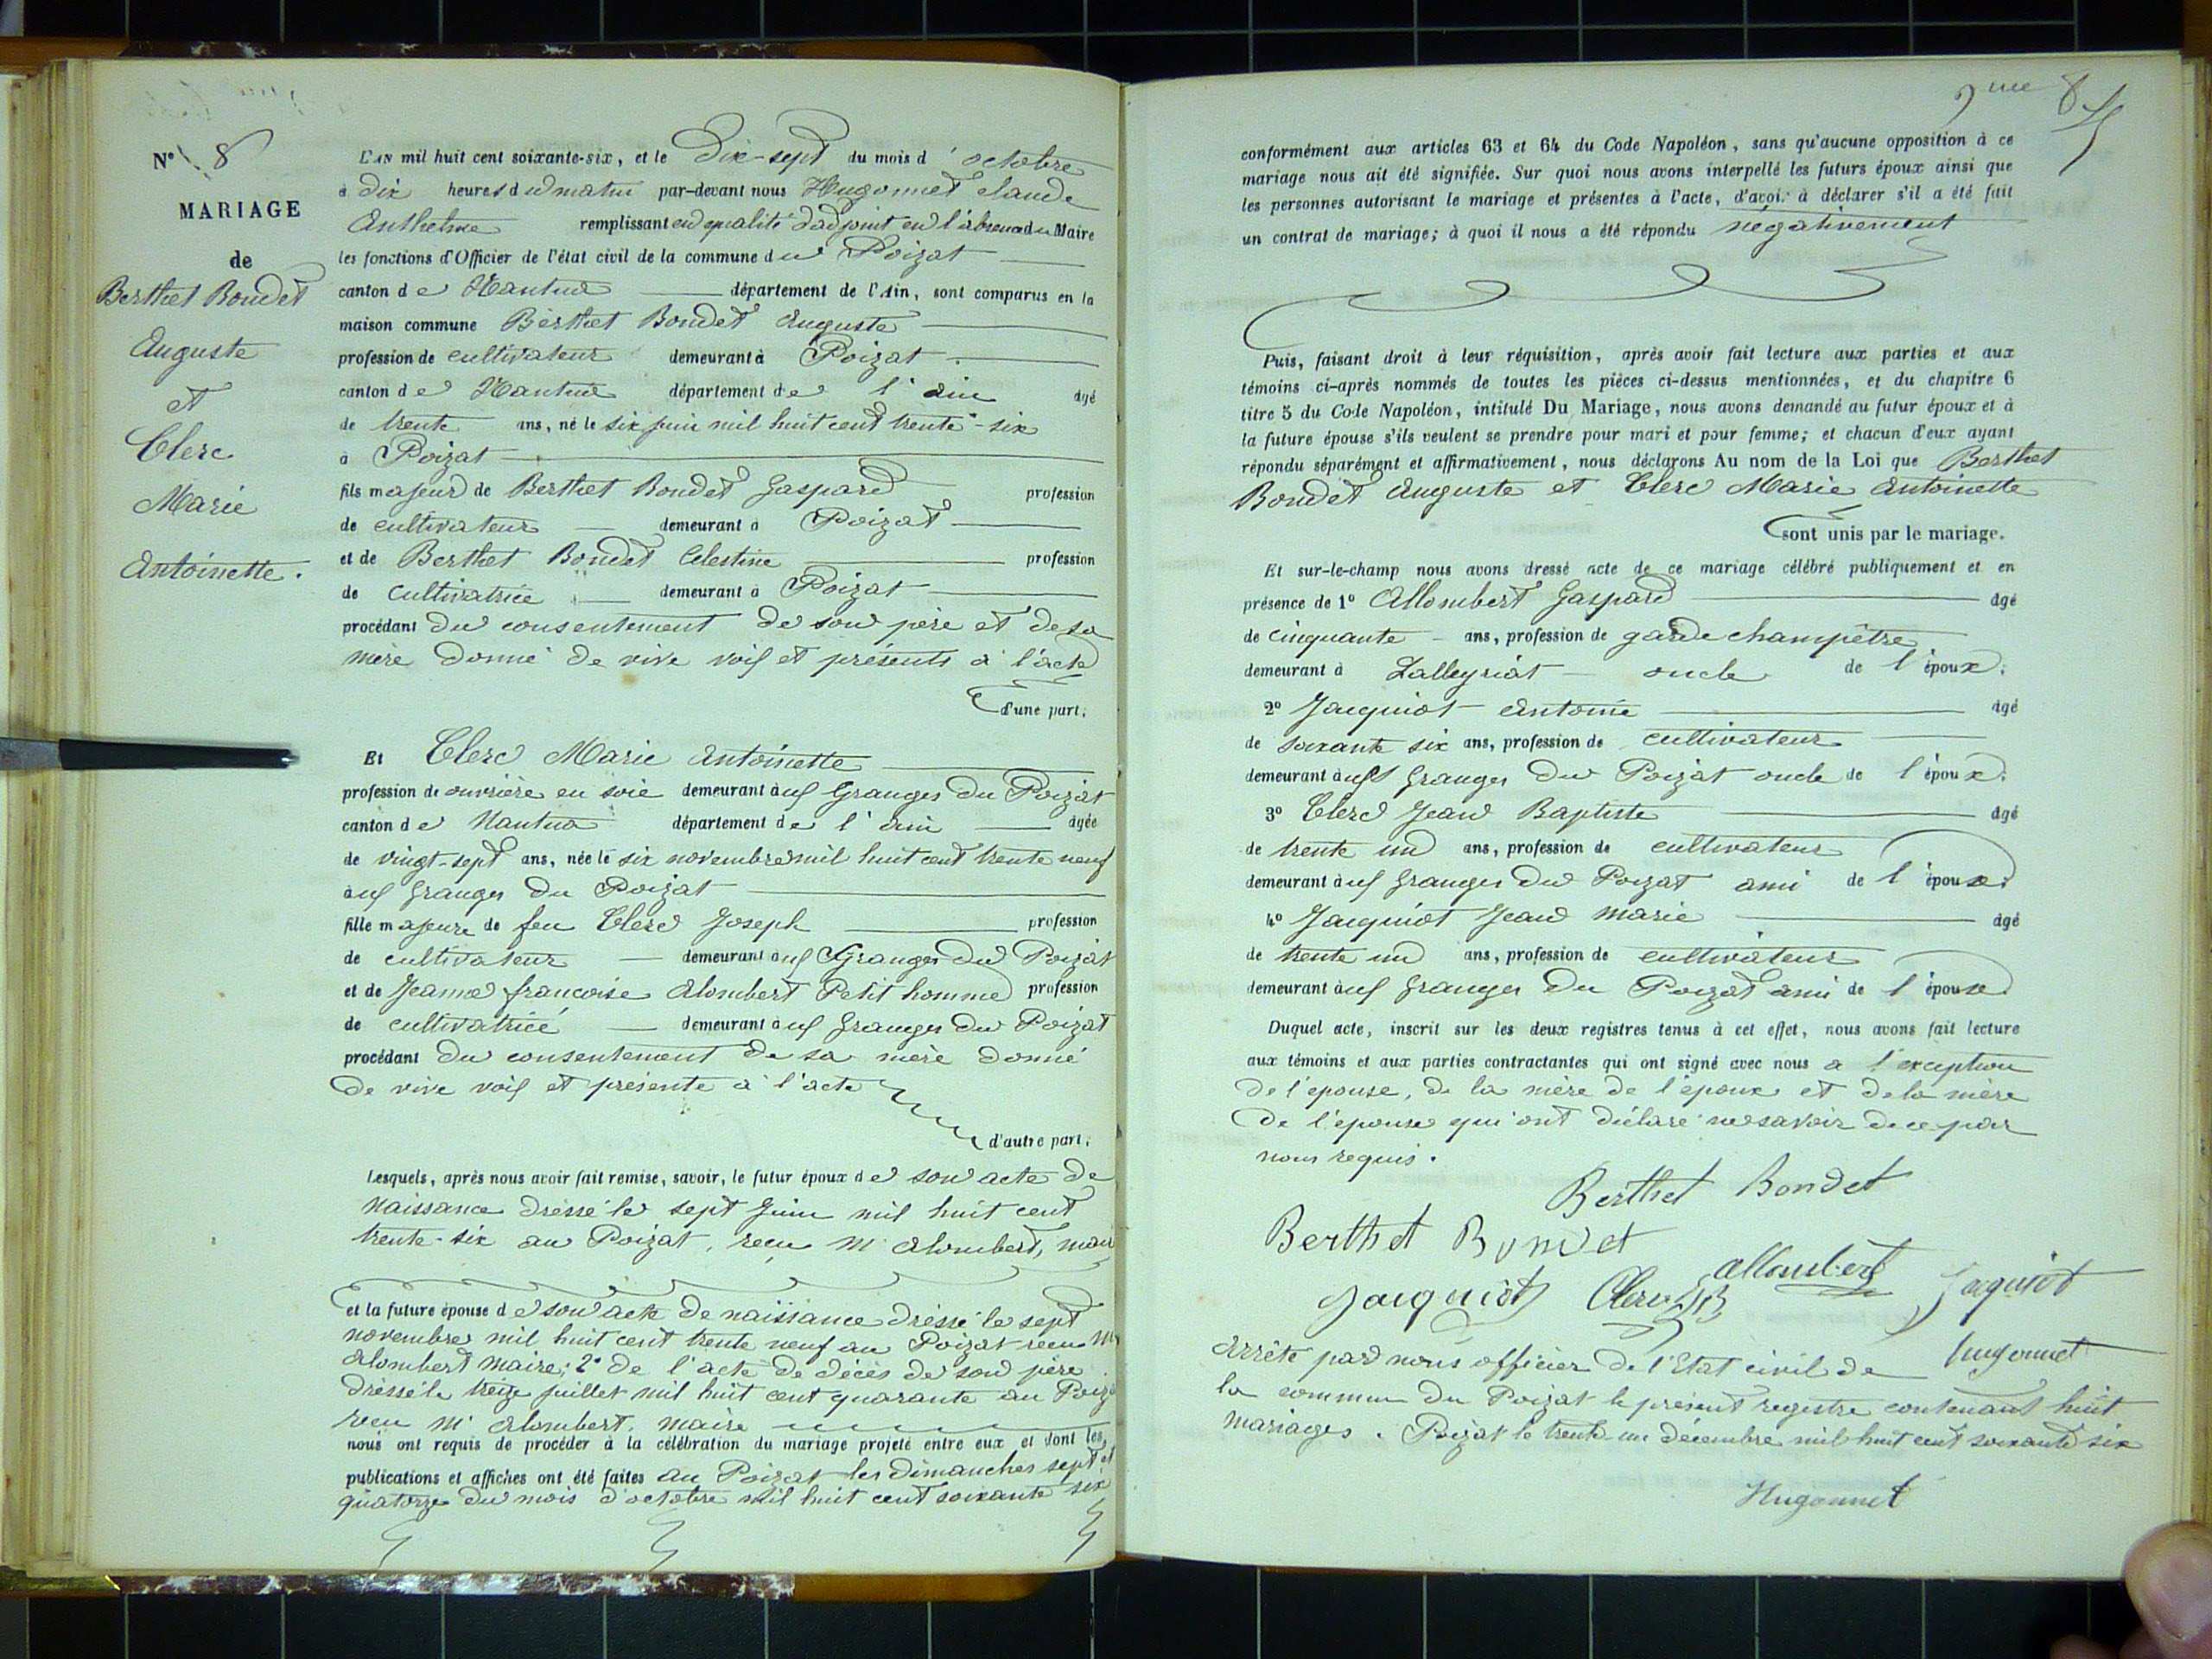 N° 8
MARIAGE
de
Berthet Bondet
Auguste
et
Clerc
Marie
Antoinette.
L'AN mil huit cent soixante-six, et le Dix-sept du mois d'octobre
à dix heures du matin par-devant nous Hugonnet Claude
Anthelme remplissant en qualité d'adjoint en l'absence du Maire
les fonctions d'Officier de l'état civil de la commune du Poizat
canton de Nantua département de l'Ain, sont comparus en la
maison commune Berthet Bondet Auguste
profession de cultivateur demeurant à Poizat
canton de Nantua département de l'ain âgé
de trente ans, né le six juin mil huit cent trente-six
à Poizat
fils majeur de Berthet Bondet Gaspard profession
de cultivateur demeurant à Poizat
et de Berthet Bondet Célestine profession
de cultivatrice demeurant à Poizat
procédant du consentement de son père et de sa
mère donné de vive voix et présents à l'acte
d'une part.
Et Clerc Marie Antoinette
profession de ouvrière en soie demeurant aux Granges du Poizat
canton de Nantua département de l'ain âgée
de vingt-sept ans, née le six novembre mil huit cent trente neuf
aux Granges du Poizat
fille majeure de feu Clerc Joseph profession
de cultivateur demeurant aux Granges du Poizat
et de Jeanne françoise Alombert Petit homme profession
de cultivatrice demeurant aux Granges du Poizat
procédant du consentement de sa mère donné
de vive voix et présente à l'acte
d'autre part.
Lesquels, après nous avoir fait remise, savoir, le futur époux de son acte de
naissance dressé le sept juin mil huit cent
trente-six au Poizat, reçu Mr Alombert, maire
et la future épouse de son acte de naissance dressé le sept
novembre mil huit cent trente neuf au Poizat reçu Mr
Alombert Maire; 2° de l'acte de décès de son père
dressé le treize juillet mil huit cent quarante au Poizat
reçu Mr Alombert, maire
nous ont requis de procéder à la célébration du mariage projeté entre eux et dont les
publications et affiches ont été faites au Poizat les dimanches sept et
quatorze du mois d'octobre mil huit cent soixante six
conformément aux articles 63 et 64 du Code Napoléon, sans qu'aucune opposition à ce
mariage nous ait été signifiée. Sur quoi nous avons interpellé les futurs époux ainsi que
les personnes autorisant le mariage et présentes à l'acte, d'avoir à déclarer s'il a été fait
un contrat de mariage; à quoi il nous a été répondu négativement
Puis, faisant droit à leur réquisition, après avoir fait lecture aux parties et aux
témoins ci-après nommés de toutes les pièces ci-dessus mentionnées, et du chapitre 6
titre 5 du Code Napoléon, intitulé Du Mariage, nous avons demandé au futur époux et à
la future épouse s'ils veulent se prendre pour mari et pour femme; et chacun d'eux ayant
répondu séparément et affirmativement, nous déclarons Au nom de la Loi que Berthet
Bondet Auguste et Clerc Marie Antoinette
sont unis par le mariage.
Et sur-le-champ nous avons dressé acte de ce mariage célébré publiquement et en
présence de 1° Allombert Gaspard âgé
de cinquante ans, profession de garde champêtre
demeurant à Lalleyriat oncle de l'époux.
2° Jacquiot Antoine âgé
de soixante six ans, profession de cultivateur
demeurant aux Granges du Poizat oncle de l'époux.
3° Clerc Jean Baptiste âgé
de trente un ans, profession de cultivateur
demeurant aux Granges du Poizat ami de l'époux.
4° Jacquiot Jean Marie âgé
de trente un ans, profession de cultivateur
demeurant aux Granges du Poizat ami de l'époux.
Duquel acte, inscrit sur les deux registres tenus à cet effet, nous avons fait lecture
aux témoins et aux parties contractantes qui ont signé avec nous à l'exception
de l'épouse, de la mère de l'époux et de la mère
de l'épouse qui ont déclaré ne savoir de ce par
nous requis.
Berthet Bondet
Berthet Bondet
Jacquiot Clerc JB Allombert Jaquiot
Hugonnet
Arrêté par nous officier de l'Etat civil de
la commune du Poizat le présent registre contenant huit
mariages. Poizat le trente-un décembre mil huit cent soixante six
Hugonnet